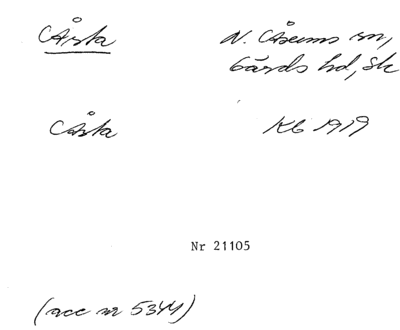 Årsta N. Åsums sn,
Gärds hd, Sk
Årsta KB 1919
Nr 21105
(acc nr 5344)